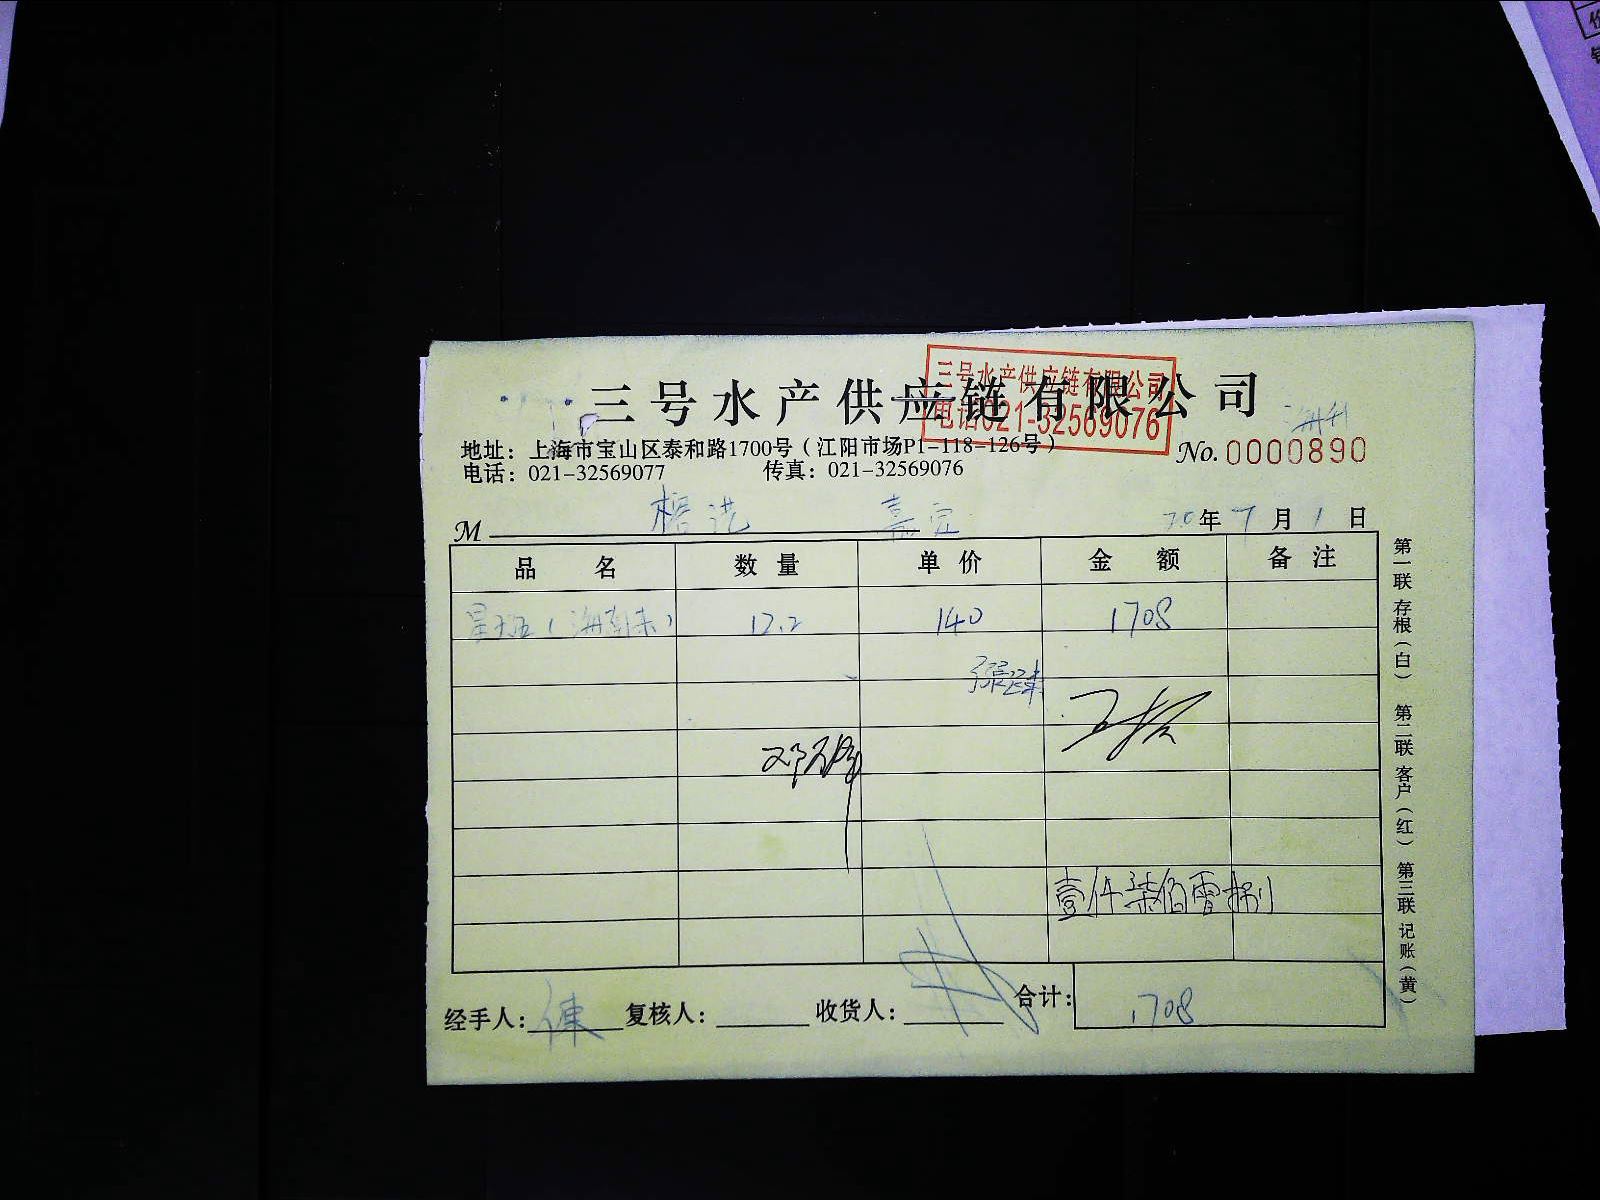 三号水产供应链有限公司
三号水产供应链有限公司
电话021-32569076
地址：上海市宝山区泰和路1700号（江阳市场P1-118-126号）
No. 0000890
电话：021-32569077 传真：021-32569076
M 嘉定 20年7月1日
品名 数量 单价 金额 备注
12.2 140 1708
壹仟柒佰零捌
经手人： 复核人： 收货人： 合计： 1708
第一联 存根（白） 第二联 客户（红） 第三联 记账（黄）